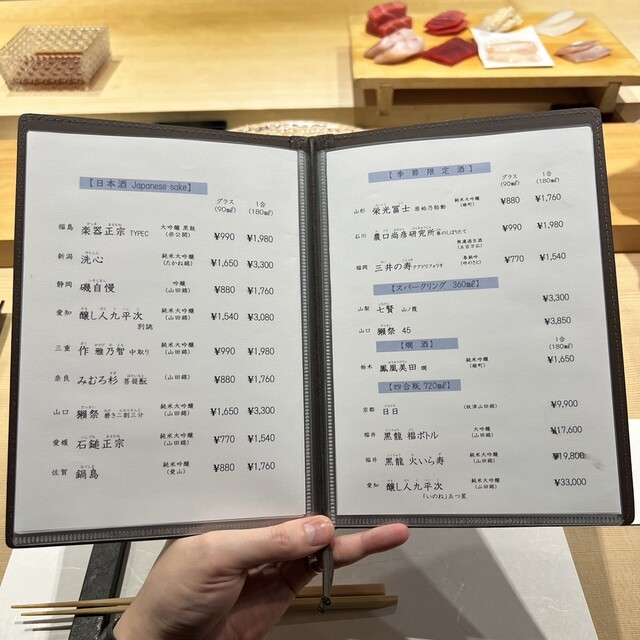 【日本酒 Japanese sake】
グラス (90㎖) 1合 (180㎖)
福島 楽器正宗 TYPEC 大吟醸 黒麹 (非公開) ¥990 ¥1,980
新潟 洗心 純米大吟醸 (たかね錦) ¥1,650 ¥3,300
静岡 磯自慢 吟醸 (山田錦) ¥880 ¥1,760
愛知 醸し人九平次 別誂 純米大吟醸 (山田錦) ¥1,540 ¥3,080
三重 作 雅乃智 中取り 純米大吟醸 (山田錦) ¥990 ¥1,980
奈良 みむろ杉 菩提酛 (山田錦) ¥880 ¥1,760
山口 獺祭 磨き二割三分 純米大吟醸 (山田錦) ¥1,650 ¥3,300
愛媛 石鎚正宗 純米大吟醸 (山田錦) ¥770 ¥1,540
佐賀 鍋島 純米吟醸 (愛山) ¥880 ¥1,760
【季節限定酒】
グラス (90㎖) 1合 (180㎖)
山形 栄光冨士 純米大吟醸 (雄町) ¥880 ¥1,760
石川 農口尚彦研究所 無濾過生酒 (五百万石) ¥990 ¥1,980
福岡 三井の寿 クアドリフォリオ ¥770 ¥1,540
【スパークリング 360㎖】
山梨 七賢 山ノ霞 ¥3,300
山口 獺祭 45 ¥3,850
【燗酒】
1合 (180㎖)
栃木 鳳凰美田 燗 純米吟醸 (雄町) ¥1,650
【四合瓶 720㎖】
京都 日日 (秋津山田錦) ¥9,900
福井 黒龍 福ボトル 大吟醸 (山田錦) ¥17,600
福井 黒龍 火いら寿 純米大吟醸 (山田錦) ¥19,800
愛知 醸し人九平次 純米大吟醸 (山田錦) ¥33,000
「いのね」五つ星